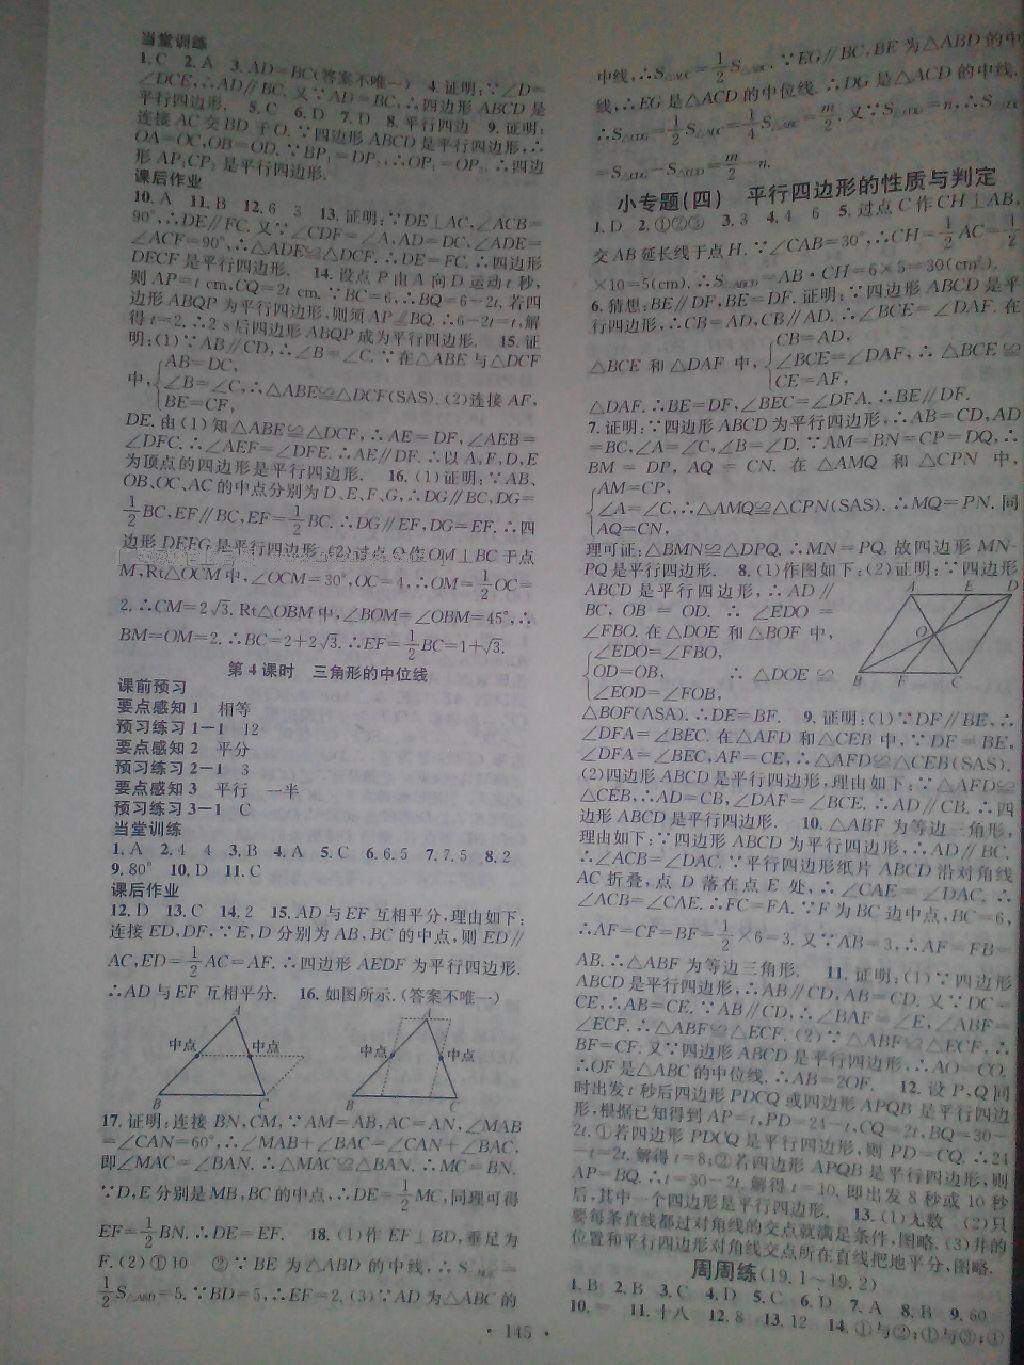 当堂训练
1.C 2.A 3.AD=BC(答案不唯一) 4.证明:∵∠D=
∠DCE,∴AD∥BC.又∵AD=BC,∴四边形ABCD是
平行四边形. 5.C 6.D 7.D 8.平行四边 9.证明:
连接AC交BD于O.∵四边形ABCD是平行四边形,∴
OA=OC,OB=OD.∵BP₁=DP₂,∴OP₁=OP₂.∴四边
形AP₁CP₂是平行四边形.
课后作业
10.A 11.B 12.6 3 13.证明:∵DE⊥AC,∠ACB=
90°,∴DE∥FC.又∵∠CDF=∠A,AD=DC,∠ADE=
∠ACF=90°,∴△ADE≌△DCF.∴DE=FC.∴四边形
DECF是平行四边形. 14.设点P由A向D运动t秒,
则AP=t cm,CQ=2t cm.∵BC=6,∴BQ=6-2t.若四
边形ABQP为平行四边形,则须AP∥BQ.∴6-2t=t,解
得t=2.∴2 s后四边形ABQP成为平行四边形. 15.证
明:(1)∵AB∥CD,∴∠B=∠C.∵在△ABE与△DCF
AB=DC,
中,∠B=∠C,∴△ABE≌△DCF(SAS).(2)连接AF,
BE=CF,
DE.由(1)知△ABE≌△DCF,∴AE=DF,∠AEB=
∠DFC.∴∠AEF=∠DFE.∴AE∥DF.∴以A、F、D、E
为顶点的四边形是平行四边形. 16.(1)证明:∵AB、
OB、OC、AC的中点分别为D、E、F、G,∴DG∥BC,DG=
1/2BC,EF∥BC,EF=1/2BC.∴DG∥EF,DG=EF.∴四
边形DEFG是平行四边形.(2)过点O作OM⊥BC于点
M,Rt△OCM中,∠OCM=30°,OC=4,∴OM=1/2OC=
2.∴CM=2√3.Rt△OBM中,∠BOM=∠OBM=45°,∴
BM=OM=2.∴BC=2+2√3.∴EF=1/2BC=1+√3.
第4课时 三角形的中位线
课前预习
要点感知1 相等
预习练习1-1 12
要点感知2 平分
预习练习2-1 3
要点感知3 平行 一半
预习练习3-1 C
当堂训练
1.A 2.4 4 3.B 4.A 5.C 6.6.5 7.7.5 8.2
9.80° 10.D 11.C
课后作业
12.D 13.C 14.2 15.AD与EF互相平分,理由如下:
连接ED,DF,∵E,D分别为AB,BC的中点,则ED∥
AC,ED=1/2AC=AF.∴四边形AEDF为平行四边形.
∴AD与EF互相平分. 16.如图所示.(答案不唯一)
A A
中点 中点 中点 中点
B C B C
17.证明:连接BN,CM,∵AM=AB,AC=AN,∠MAB
=∠CAN=60°,∴∠MAB+∠BAC=∠CAN+∠BAC.
即∠MAC=∠BAN.∴△MAC≌△BAN.∴MC=BN.
∵D,E分别是MB,BC的中点,∴DE=1/2MC,同理可得
EF=1/2BN.∴DE=EF. 18.(1)作EF⊥BD,垂足为
F.(2)①10 ②∵BE为△ABD的中线,∴S=
1/2S△ABD=5.∵BD=5,∴EF=2.(3)∵AD为△ABC的
中线,∴S△ADC=1/2S△ABC.∵EG∥BC,BE为△ABD的中
线,∴EG是△ACD的中位线.∴DG是△ACD的中线.
∴S=1/2S△ADC=1/4S△ABC=m/2.又∵S=n,∴S
=S-S=m/2-n.
小专题(四) 平行四边形的性质与判定
1.D 2.①②③ 3.3 4.4 6 5.过点C作CH⊥AB,
交AB延长线于点H.∵∠CAB=30°,∴CH=1/2AC=1/2
×10=5(cm).∴S=AB·CH=6×5=30(cm²).
6.猜想:BE∥DF,BE=DF.证明:∵四边形ABCD是平
行四边形,∴CB=AD,CB∥AD.∴∠BCE=∠DAF.在
CB=AD,
△BCE和△DAF中,∠BCE=∠DAF,∴△BCE≌
CE=AF,
△DAF.∴BE=DF,∠BEC=∠DFA.∴BE∥DF.
7.证明:∵四边形ABCD为平行四边形,∴AB=CD,AD
=BC,∠A=∠C,∠B=∠D.∵AM=BN=CP=DQ,∴
BM=DP,AQ=CN.在△AMQ和△CPN中,
AM=CP,
∠A=∠C,∴△AMQ≌△CPN(SAS).∴MQ=PN.同
AQ=CN,
理可证:△BMN≌△DPQ.∴MN=PQ.故四边形MN-
PQ是平行四边形. 8.(1)作图如下:(2)证明:∵四边形
ABCD是平行四边形,∴AD∥
BC,OB=OD.∴∠EDO=
∠FBO.在△DOE和△BOF中,
∠EDO=∠FBO,
OD=OB, ∴△DOE≌
∠EOD=∠FOB,
A E D
O
B F C
△BOF(ASA).∴DE=BF. 9.证明:(1)∵DF∥BE,∴
∠DFA=∠BEC.在△AFD和△CEB中,∵DF=BE,
∠DFA=∠BEC,AF=CE,∴△AFD≌△CEB(SAS).
(2)四边形ABCD是平行四边形,理由如下:∵△AFD≌
△CEB,∴AD=CB,∠DAF=∠BCE.∴AD∥CB.∴四
边形ABCD是平行四边形. 10.△ABF为等边三角形,
理由如下:∵四边形ABCD为平行四边形,∴AD∥BC.
∴∠ACB=∠DAC.∵平行四边形纸片ABCD沿对角线
AC折叠,点D落在点E处,∴∠CAE=∠DAC.∴
∠ACB=∠CAE.∴FC=FA.∵F为BC边中点,BC=6,
∴AF=CF=BF=1/2×6=3.又∵AB=3,∴AF=FB=
AB.∴△ABF为等边三角形. 11.证明:(1)∵四边形
ABCD是平行四边形,∴AB∥CD,AB=CD.又∵DC=
CE,∴AB=CE.∵AB∥CD,∴∠BAF=∠E,∠ABF=
∠ECF.∴△ABF≌△ECF.(2)∵△ABF≌△ECF,∴
BF=CF.又∵四边形ABCD是平行四边形,∴AO=CO.
∴OF是△ABC的中位线.∴AB=2OF. 12.设P,Q同
时出发t秒后四边形PDCQ或四边形APQB是平行四边
形,根据已知得到AP=t,PD=24-t,CQ=2t,BQ=30-
2t.①若四边形PDCQ是平行四边形,则PD=CQ.∴24
-t=2t.解得t=8;②若四边形APQB是平行四边形,则
AP=BQ.∴t=30-2t.解得t=10.即出发8秒或10秒
后,其中一个四边形是平行四边形. 13.(1)无数 (2)只
要每条直线都过对角线的交点就满足条件,图略.(3)井的
位置和平行四边形对角线交点所在直线把地平分,图略.
周周练(19.1~19.2)
1.B 2.B 3.C 4.D 5.C 6.D 7.A 8.B 9.60
10.= 11.十八 12.8 13.12 14.①与②;①与③;①
·145·